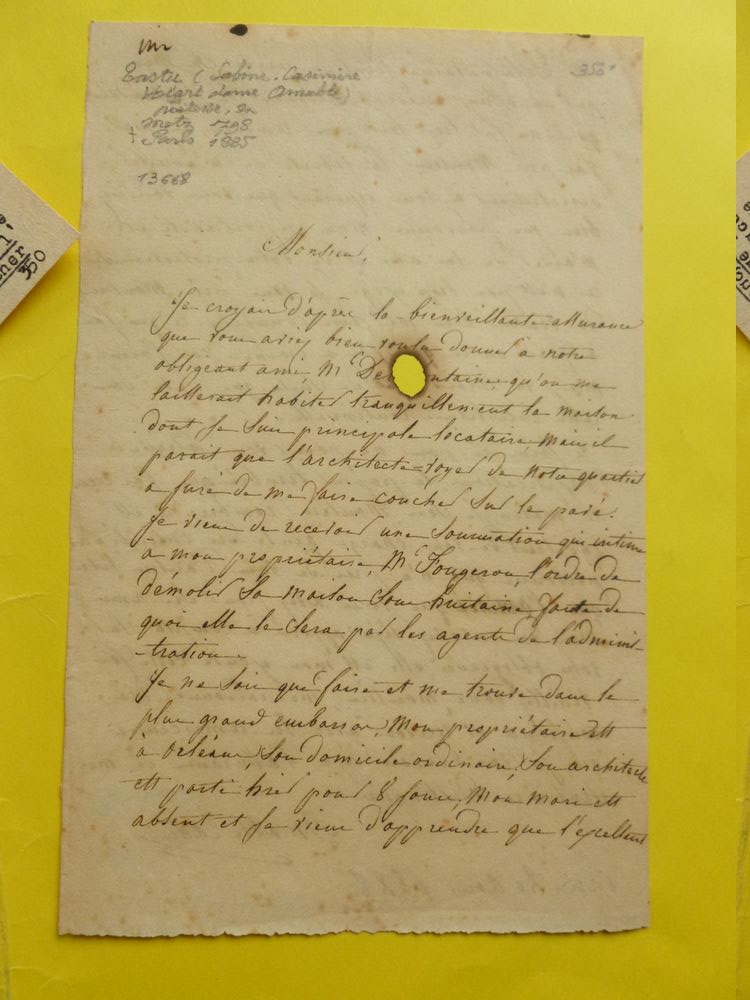 Tastu (Sabine. Casimire
Voïart dame Amable)
poétesse, en
Metz 1798
+ Paris 1885
13668
350
Monsieur,
Je croyais d'après la bienveillante assurance
que vous aviez bien voulu donner à notre
obligeant ami, Mr Des ntaines qu'on me
laisserait habiter tranquillement la maison
dont je suis principale locataire, mais il
parait que l'architecte-voyer de notre quartier
a juré de me faire coucher sur le pavé.
Je viens de recevoir une sommation qui intime
à mon propriétaire, Mr Fougeron, l'ordre de
démolir sa maison sous huitaine, faute de
quoi elle le sera par les agents de l'adminis-
-tration.
Je ne sais que faire et me trouve dans le
plus grand embarras, Mon propriétaire est
à Orléans, son domicile ordinaire, son architecte
est parti hier pour 8 jours, Mon mari est
absent et je viens d'apprendre que l'excellent